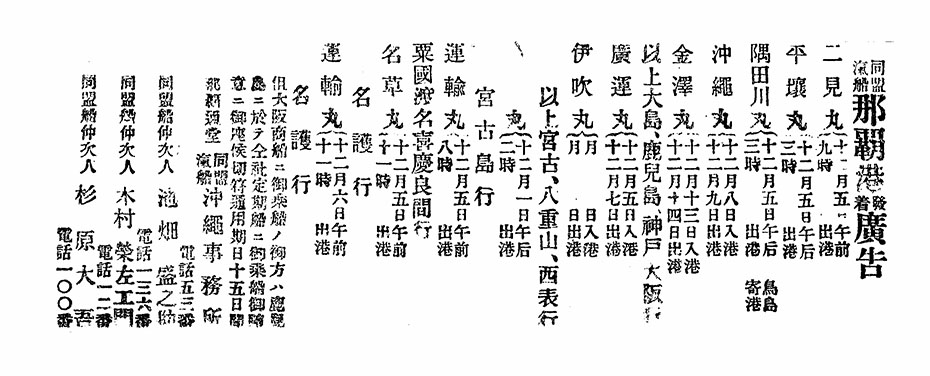 同盟汽船那覇港発着廣告
二見丸 十二月五日午前九時出港
平壤丸 十二月五日午后三時出港
隅田川丸 十二月五日午后三時出港 鳥島寄港
沖繩丸 十二月八日入港 十二月九日出港
金澤丸 十二月十三日入港 十二月十四日出港
以上大島、鹿兒島神戸大阪行
廣運丸 十二月五日入港 十二月七日出港
伊吹丸 月 日入港 月 日出港
以上宮古、八重山、西表行
丸 十二月一日午后二時出港
宮古島行
運輸丸 十二月五日午前八時出港
粟國渡名喜慶良間行
名草丸 十二月五日午前十一時出港
名護行
運輸丸 十二月六日午前十一時出港
名護行
但大阪商船ニ御乘船ノ御方ハ鹿兒
島ニ於テ仝社定期船ニ御乘船御隨
意ニ御座候切符通用期日十五日間
那覇通堂 同盟汽船沖繩事務所
電話五三番
同盟船仲次人 池畑盛之助
電話一三六番
同盟船仲次人 木村榮左エ門
電話一二番
同盟船仲次人 杉原大吾
電話一〇〇番